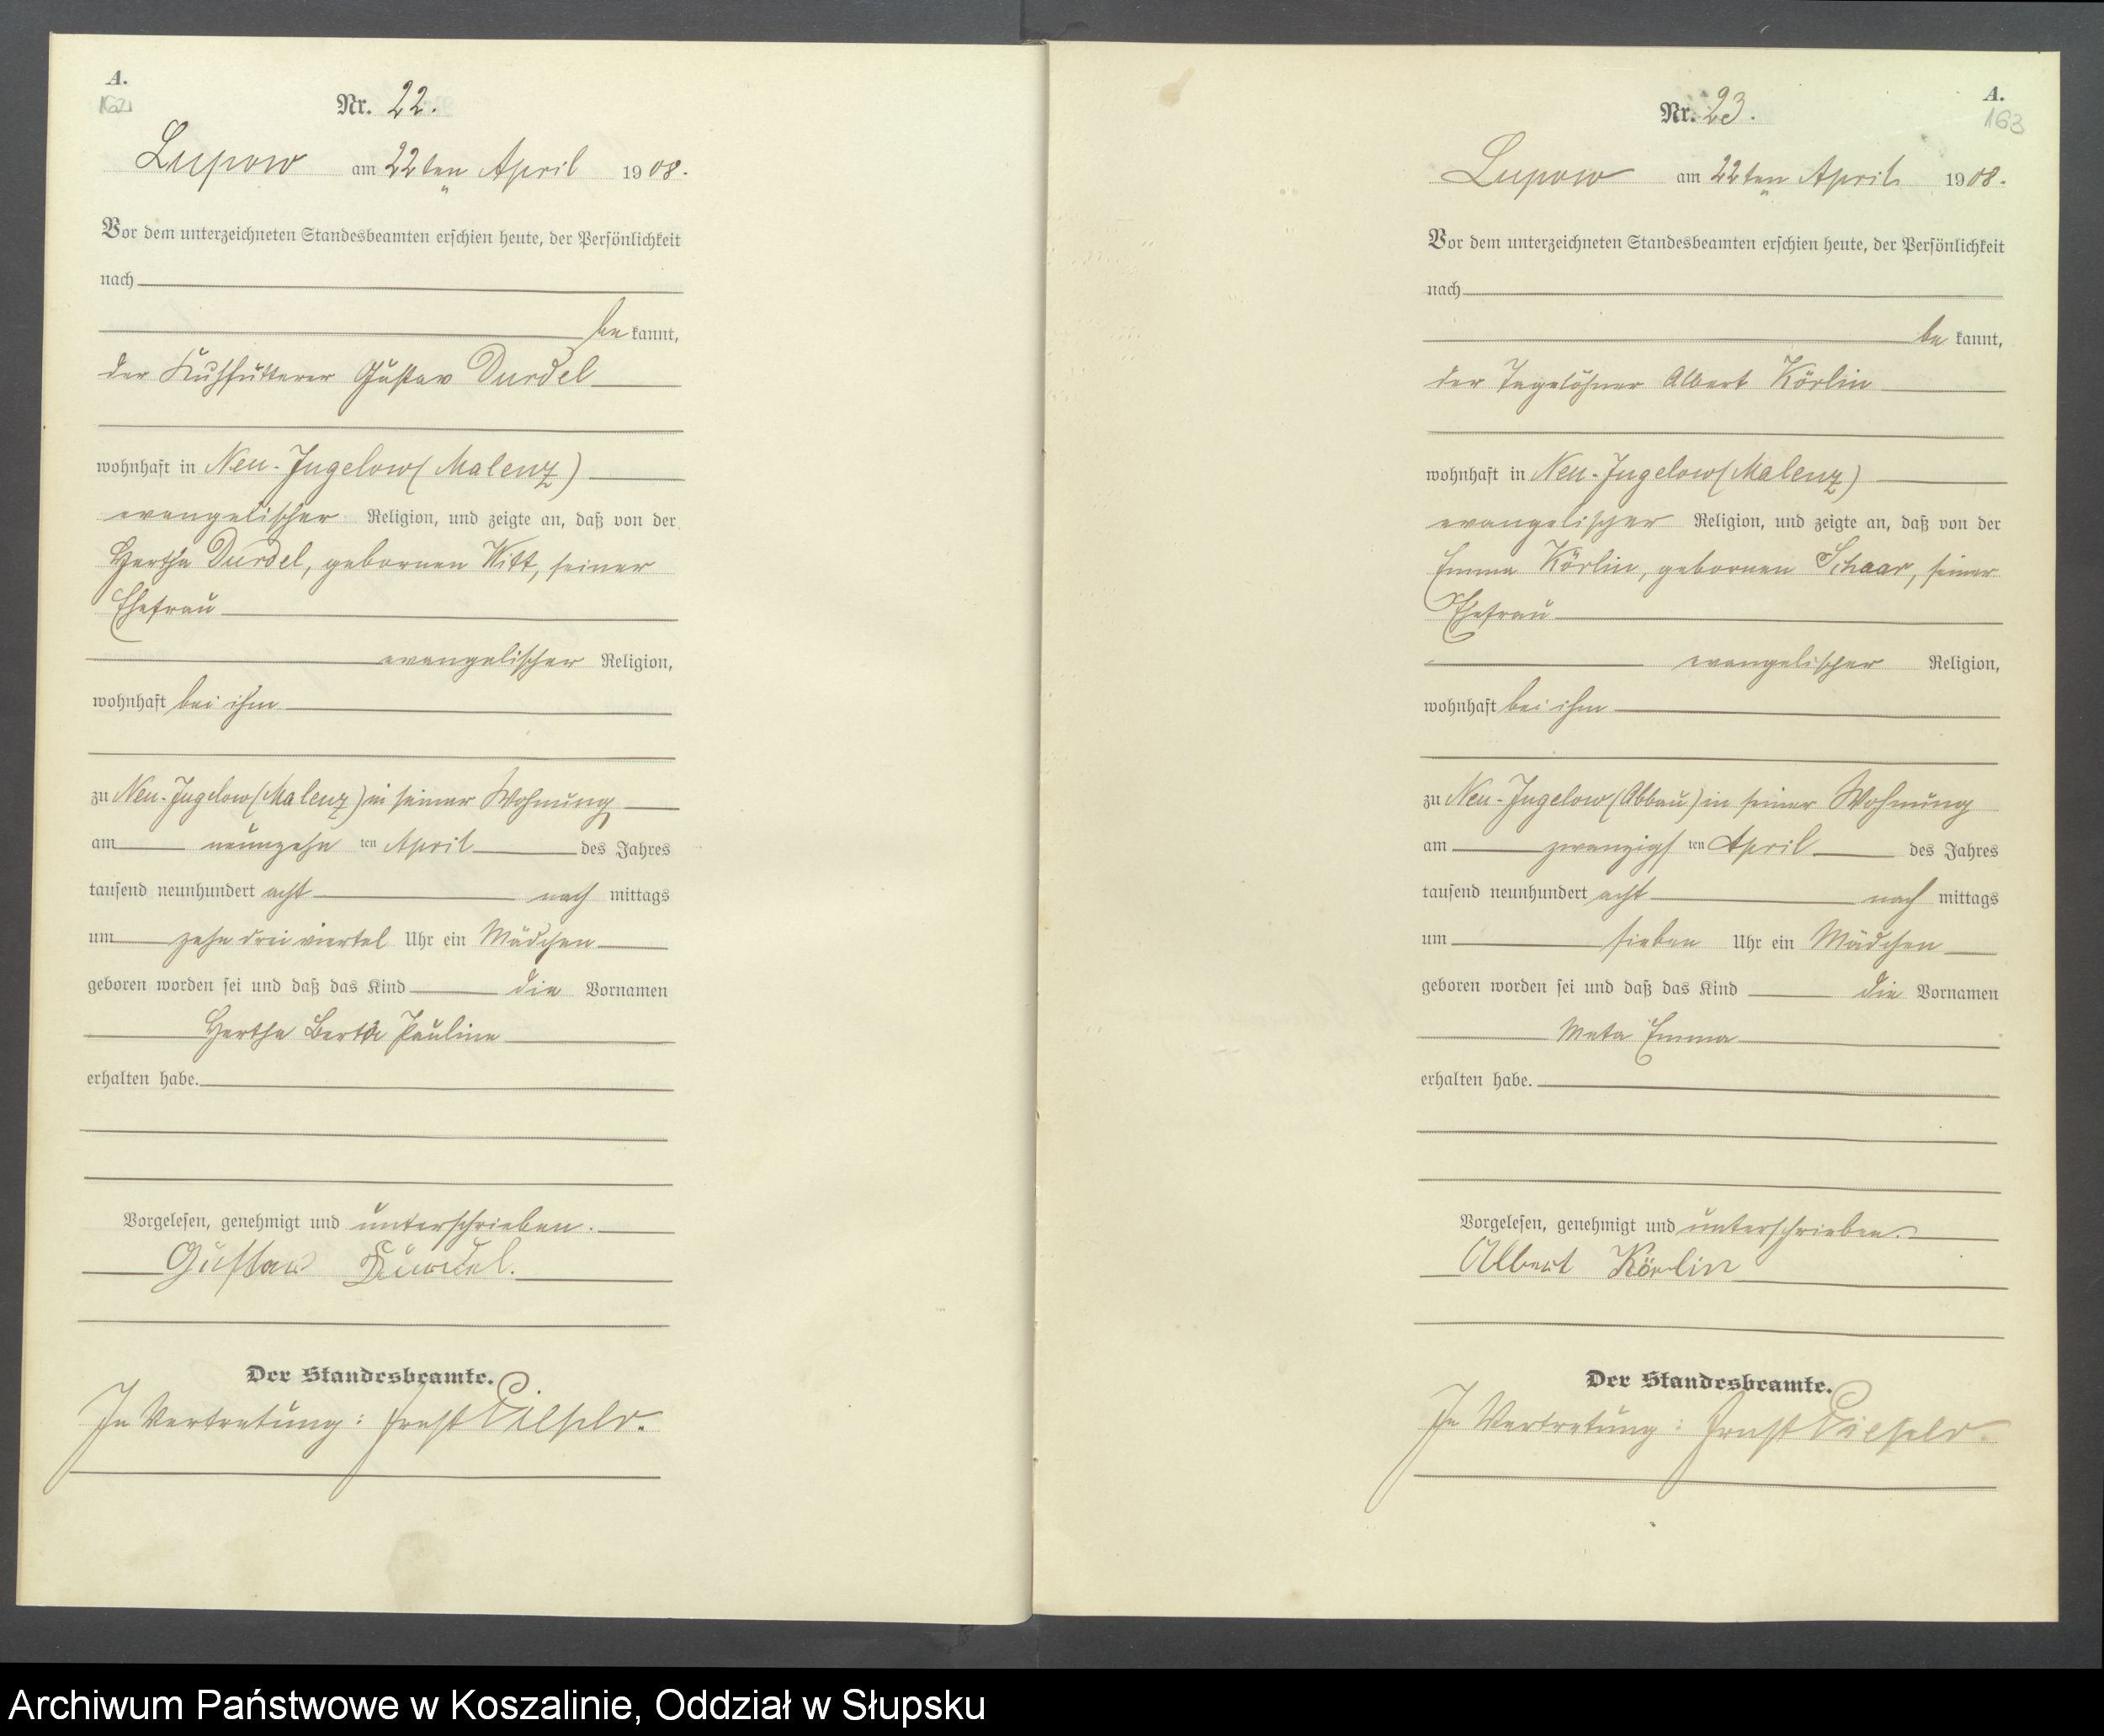 A.
162
Nr. 22.
Lupow am 22ten April 1908.
Vor dem unterzeichneten Standesbeamten erschien heute, der Persönlichkeit
nach
bekannt,
der Kuhfütterer Gustav Durdel
wohnhaft in Neu-Jugelow (Malenz)
evangelischer Religion, und zeigte an, daß von der
Hertha Durdel, gebornen Witt, seiner
Ehefrau
evangelischer Religion,
wohnhaft bei ihm
zu Neu-Jugelow (Malenz) in seiner Wohnung
am neunzehn ten April des Jahres
tausend neunhundert acht nach mittags
um zehn drei viertel Uhr ein Mädchen
geboren worden sei und daß das Kind die Vornamen
Hertha Bertha Pauline
erhalten habe.
Vorgelesen, genehmigt und unterschrieben.
Gustav Durdel.
Der Standesbeamte.
In Vertretung: Ernst
A.
163
Nr. 23.
Lupow am 22ten April 1908.
Vor dem unterzeichneten Standesbeamten erschien heute, der Persönlichkeit
nach
bekannt,
der Tagelöhner Albert Körlin
wohnhaft in Neu-Jugelow (Malenz)
evangelischer Religion, und zeigte an, daß von der
Emma Körlin, gebornen Schaar, seiner
Ehefrau
evangelischer Religion,
wohnhaft bei ihm
zu Neu-Jugelow (Abbau) in seiner Wohnung
am zwanzigsten April des Jahres
tausend neunhundert acht nach mittags
um sieben Uhr ein Mädchen
geboren worden sei und daß das Kind die Vornamen
Meta Emma
erhalten habe.
Vorgelesen, genehmigt und unterschrieben.
Albert Körlin
Der Standesbeamte.
In Vertretung: Ernst
Archiwum Państwowe w Koszalinie, Oddział w Słupsku